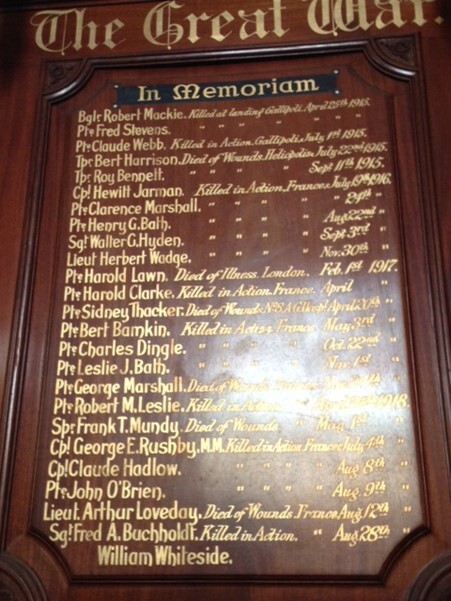 The Great War.
In Memoriam
Bglr Robert Mackie. Killed at landing Gallipoli, April 25th 1915.
Pte Fred Stevens. " " " " " "
Pte Claude Webb. Killed in Action, Gallipoli, July 1st 1915.
Tpr Bert Harrison. Died of Wounds, Heliopolis, July 22nd 1915.
Tpr Roy Bennett. " " " " Sept 11th 1915.
Cpl Hewitt Jarman. Killed in Action, France, July 19th 1916.
Pte Clarence Marshall. " " " " " 24th "
Pte Henry G. Bath. " " " " Aug 22nd "
Sgt Walter G. Hyden. " " " " Sept 3rd "
Lieut Herbert Wadge. " " " " Nov. 30th "
Pte Harold Lawn. Died of Illness. London. Feb. 1st 1917.
Pte Harold Clarke. Killed in Action. France. April "
Pte Sidney Thacker. Died of Wounds April 20th "
Pte Bert Bamkin. Killed in Action, France May 3rd "
Pte Charles Dingle. " " " " Oct. 22nd "
Pte Leslie J. Bath. " " " " Nov. 1st "
Pte George Marshall. Died of Wounds "
Pte Robert M. Leslie. Killed in 1918.
Spr Frank T. Mundy. Died of Wounds. " May 1st "
Cpl George E. Rushby, M.M. Killed in Action France July 4th "
Cpl Claude Hadlow. " " " " Aug 8th "
Pte John O'Brien. " " " " Aug. 9th "
Lieut. Arthur Loveday. Died of Wounds. France Aug. 12th "
Sgt Fred A. Buchholdt. Killed in Action. " Aug 28th "
William Whiteside.